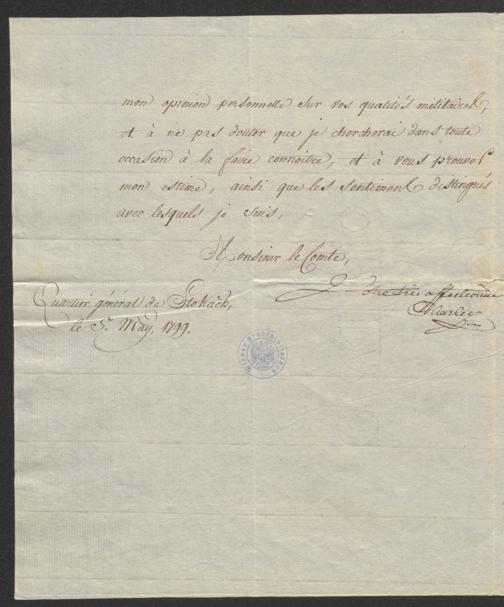 mon opinion personnelle sur vos qualités militaires,
et à ne pas douter que je chercherai dans toute
occasion à la faire connoitre, et à vous prouver
mon estime, ainsi que les sentimens distingués
avec lesquels je suis,
Monsieur le Comte,
Votre très affectionné
Charles
Quartier général de Stokach,
le 5. May, 1799.